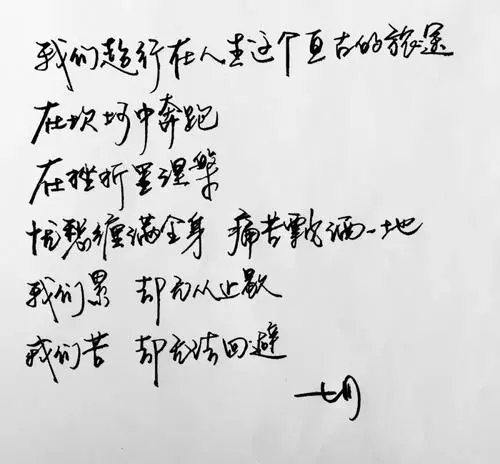 我们趋行在人生这个亘古的旅途
在坎坷中奔跑
在挫折里涅槃
忧愁缠满全身 痛苦飘洒一地
我们累 却无从止歇
我们苦 却无法回避